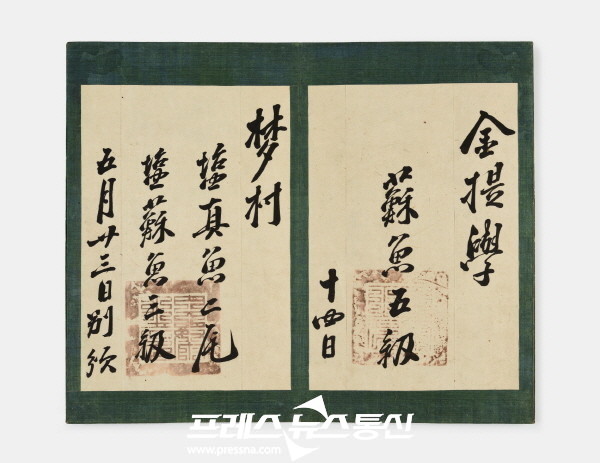 金提學
蘇魚五級
十四日
梦村
塩真魚二尾
塩蘇魚三級
五月卄三日別頒
프레스뉴스통신
www.pressna.com